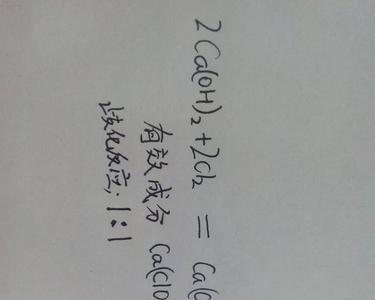 2Ca(OH)₂+2Cl₂ = Ca(C
有效成分 Ca(ClO
该化反应: 1:1